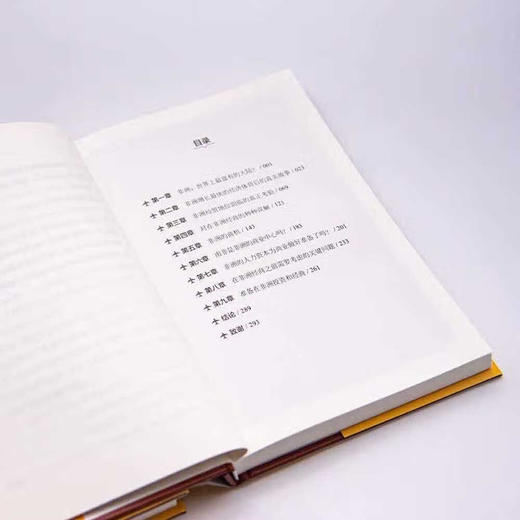 目录
第一章 非洲：世界上最富有的大陆？/001
第二章 非洲增长最快的经济体背后的真实故事/023
第三章 非洲经贸地位面临的真正考验/069
第四章 对在非洲经商的种种误解/121
第五章 非洲的商机/143
第六章 南非是非洲的商业中心吗？/183
第七章 非洲的人力资本为商业做好准备了吗？/201
第八章 在非洲经商之前需要考虑的关键问题/233
第九章 准备在非洲投资和经商/261
结论/289
致谢/293